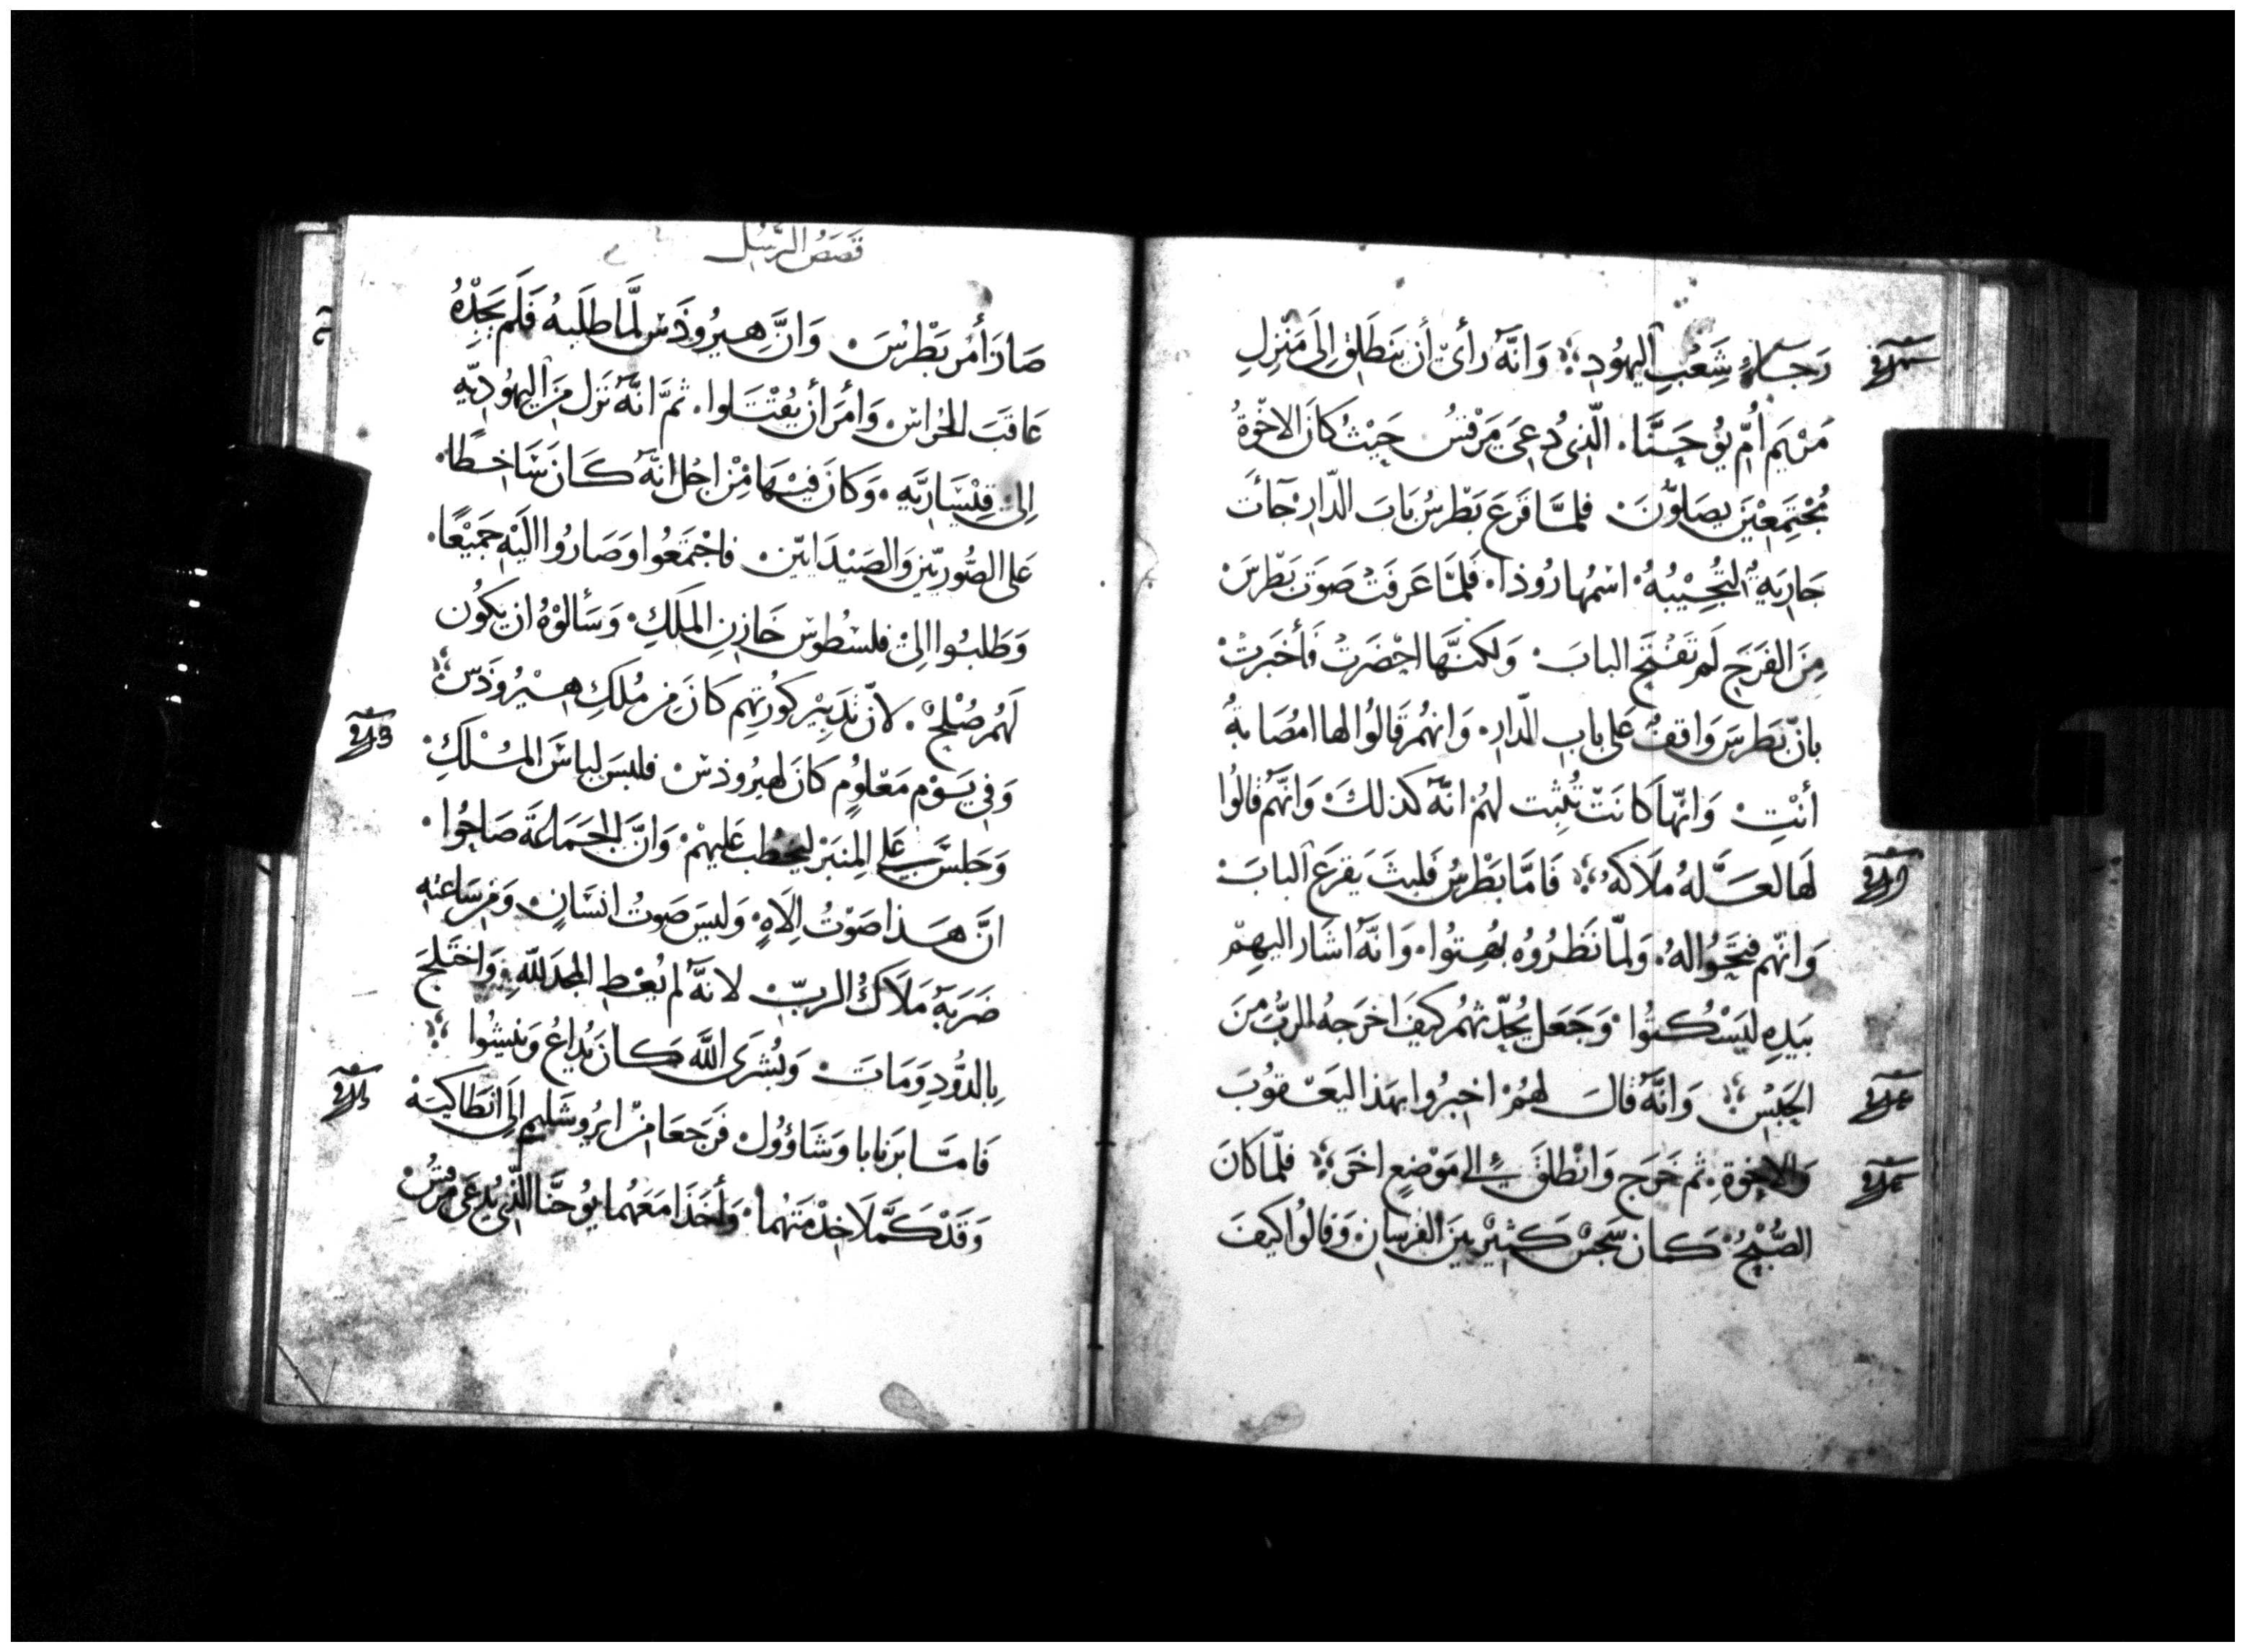 رَجَاءُ شَعْبِ اليهُودِ؛ وَانَّهُ رأىَ أن يَنطَلِقْ اِلَى مَنْزِلِ
مَرْيَم اُمّ يُوحَنَّا. الّذِى دُعِىَ مَرْقسُ حَيْثُ كَانَ الاخْوَةُ
مُجْتَمِعْينَ يصَلوُّنَ. فلمَّا قَرَعَ بَطْرسُ بَابَ الدّارِ جآئَت
جَاريَةٌ لتُجِيْبُهُ اسْمُها رُوذا. فَلمَّا عَرفَتْ صَوَتَ بَطْرسَ
مِنَ الفَرَحِ لَم تَفتَحِ البابَ. وَلكنَّها احْضَرَتْ فَأخبَرتْ
بانّ بَطرسَ وَاقفٌ عَلى بابِ الدّارِ. وَانهُم قَالوُا لها امُصَابةٌ
أنْتِ وَانّها كانَتْ تُثبِت لهُمْ انّهُ كذلكَ وَانَّهُم قَالوُا
لَها لعَلَّهُ مَلَاكهُ؛ فَامَّا بَطْرسُ فَلبثَ يَقرَع البابَ
وَانّهم فتَحَوُا لهُ. وَلمّا نَظرُوُه بُهِتوُا. وَانّهُ اشَار اليهِمْ
بَيدِهِ ليَسْكُتوُا. وَجَعَل يُحدّثهُم كيفَ اخرَجهُ الربُّ منَ
الحَبْسِ؛ وَانَّهُ قالَ لهُمْ اخبرُوا بهَذا اليَعْقوُبَ
وَالاخوةِ. ثم خَرَج وَانْطلقَ الى مَوْضعٍ اخَرَ؛ فلمّا كانَ
الصُّبْحُ كَانَ سَجسٌ كَثيْرٌ بينَ الفرسانِ وَقالوُا كيفَ
قَصَصُ الرسُل
صَارَ أمْر بَطْرُسَ. وَانَّ هِيرُوذَس لمَّا طلَبهُ فَلَم يَجِدْهُ
عَاقبَ الحُراسَ وَأمَرَ أن يُقْتَلوا. ثمَّ انَّهُ نَزل مِنَ اليهُوديّهِ
اِلىْ قيْسَاريَّهِ. وَكانَ فيْهَا مِنْ اجْل انَّهُ كَانَ سَاخِطًا.
عَلى الصُّوريّينَ وَالصَيْدَانيّين. فاجْتمَعُوا وَصَارُوا اليْهِ جَميْعًا.
وَطَلبُوا اِلىْ فلسْطُوس خَازنِ المَلَكِ. وَسَألوْهُ ان يَكوُن
لَهُم صُلحٌ. لانّ تَدبيْر كوُرتهِم كَانَ مِن مُلكِ هِيْرُوذَسَ؛
وَفي يَوْمٍ مَعْلوُمٍ كَانَ لهيرُوذسَ. فلبسَ لباسَ المُلْكِ.
وَجَلسَ عَلى المِنبَر ليَخطب عَليهْم. وَانَّ الجَمَاعَة صَاحوُا.
انَّ هَذا صَوْتُ اِلَاهٍ. وَليسَ صَوتُ انسَانٍ. وَمِن سَاعتهِ
ضَرَبهُ مَلَاكُ الربّ لانّهُ لم يُعْطِ المجدَ للهِ. وَاختَلجَ
بِالدوُّدِ وَمَاتَ. وَبُشرَى اللّه كَانَ يُذاعُ وَيَنشوُا؛
فَامَّا بَرنابا وَشَاؤوُل فَرجَعَا مِنْ ايرُوشَليم اِلَى انطاكيَهْ
وَقَدْ كَمَّلَا خِدْمَتهُما. وَأخَذا مَعَهُما يوُحَنَّا الذّي يُدعَى مرقسُ